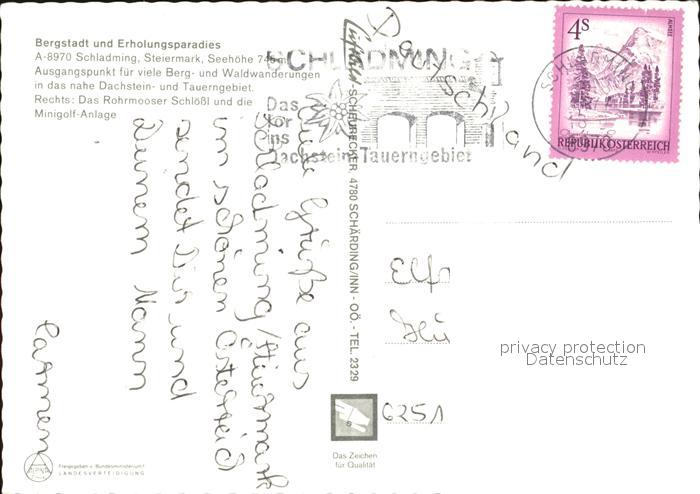 Bergstadt und Erholungsparadies
A-8970 Schladming, Steiermark, Seehöhe 745 m
Ausgangspunkt für viele Berg- und Waldwanderungen
in das nahe Dachstein- und Tauerngebiet.
Rechts: Das Rohrmooser Schlößl und die
Minigolf-Anlage
SCHLADMING
Das
Tor
ins
Dachstein-Tauerngebiet
Liebe Grüße aus
Schladming/Steiermark
im schönen Österreich
sendet Dir und
Deinem Mann
Carmen
SCHEURECKER, 4780 SCHÄRDING/INN - OÖ. - TEL. 2329
Deutschland
4S
REPUBLIK ÖSTERREICH
SCHLADMING
8970
6251
privacy protection
Datenschutz
Das Zeichen
für Qualität
Freigegeben v. Bundesministerium f.
LANDESVERTEIDIGUNG